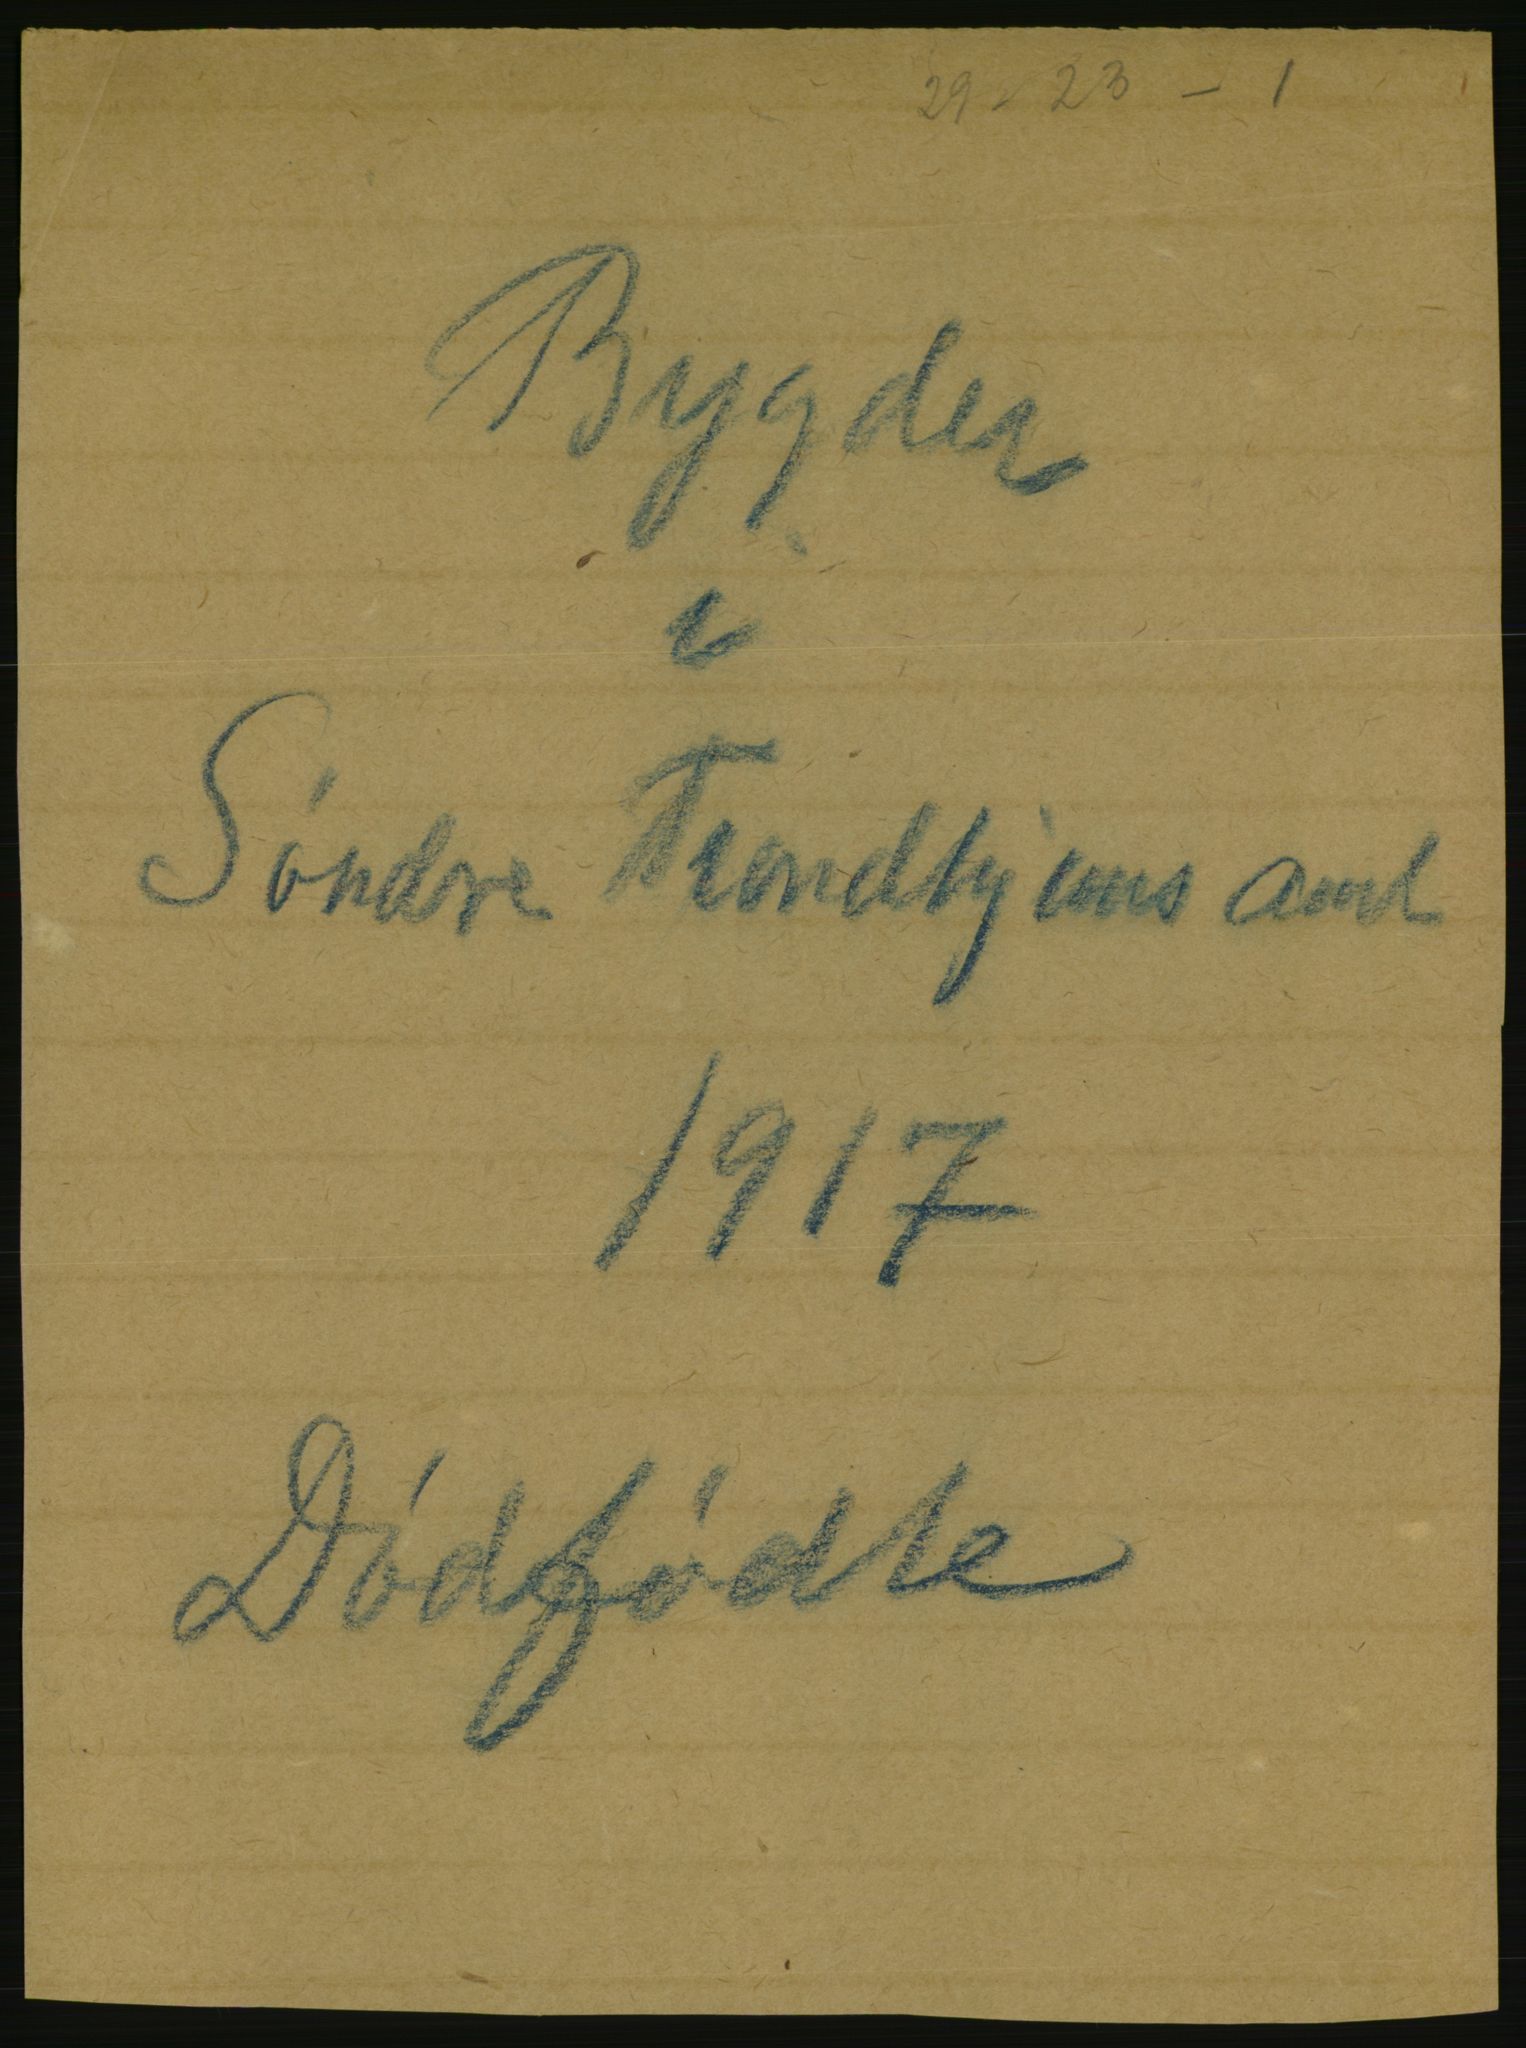 29 - 23 - 1
Bygder
i
Søndre Trondhjems amt
1917
Dødfødte